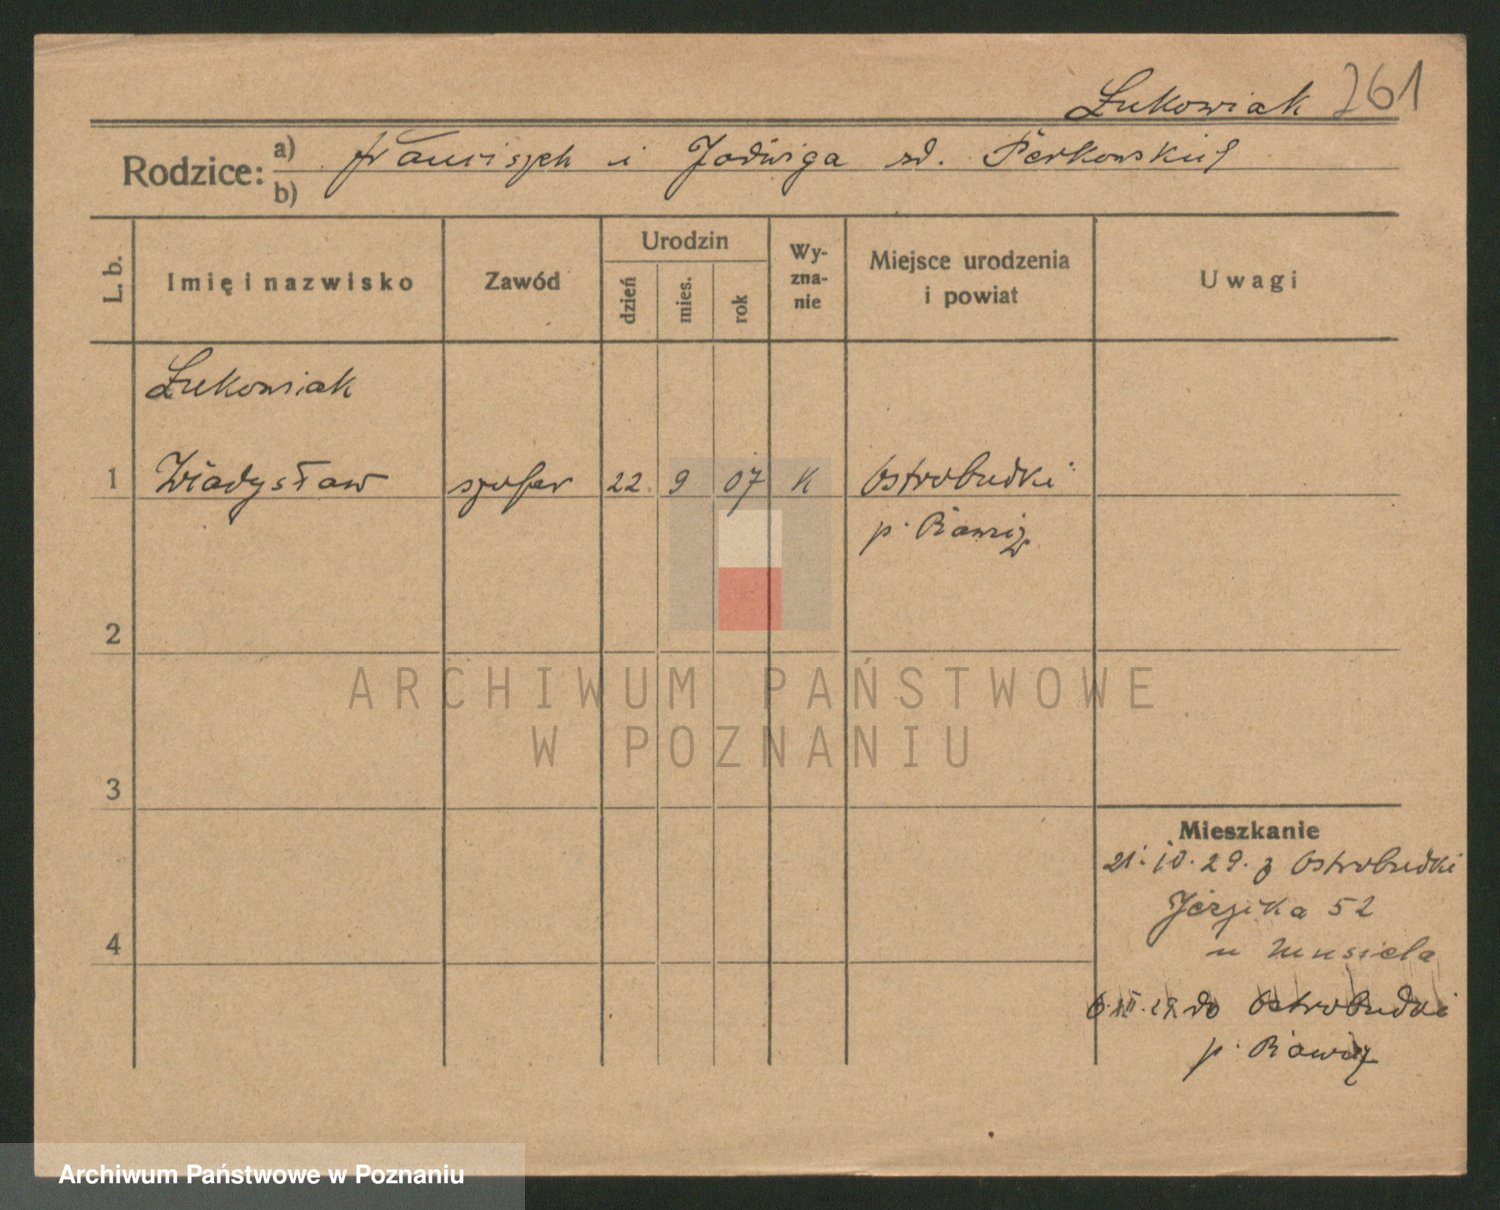 Łukowiak 261
Rodzice: a) Franciszek i Jadwiga zd.
b)
L. b.
Imię i nazwisko
Zawód
Urodzin
dzień
mies.
rok
Wy-
zna-
nie
Miejsce urodzenia
i powiat
Uwagi
Łukowiak
1 Władysław szofer 22. 9 07 K Ostrobudki
p. Rawicz
2
3
4
Mieszkanie
21. 10. 29. z Ostrobudki
52
u Musiela
6. XII. 29 do Ostrobudki
p. Rawicz
ARCHIWUM PAŃSTWOWE
W POZNANIU
Archiwum Państwowe w Poznaniu